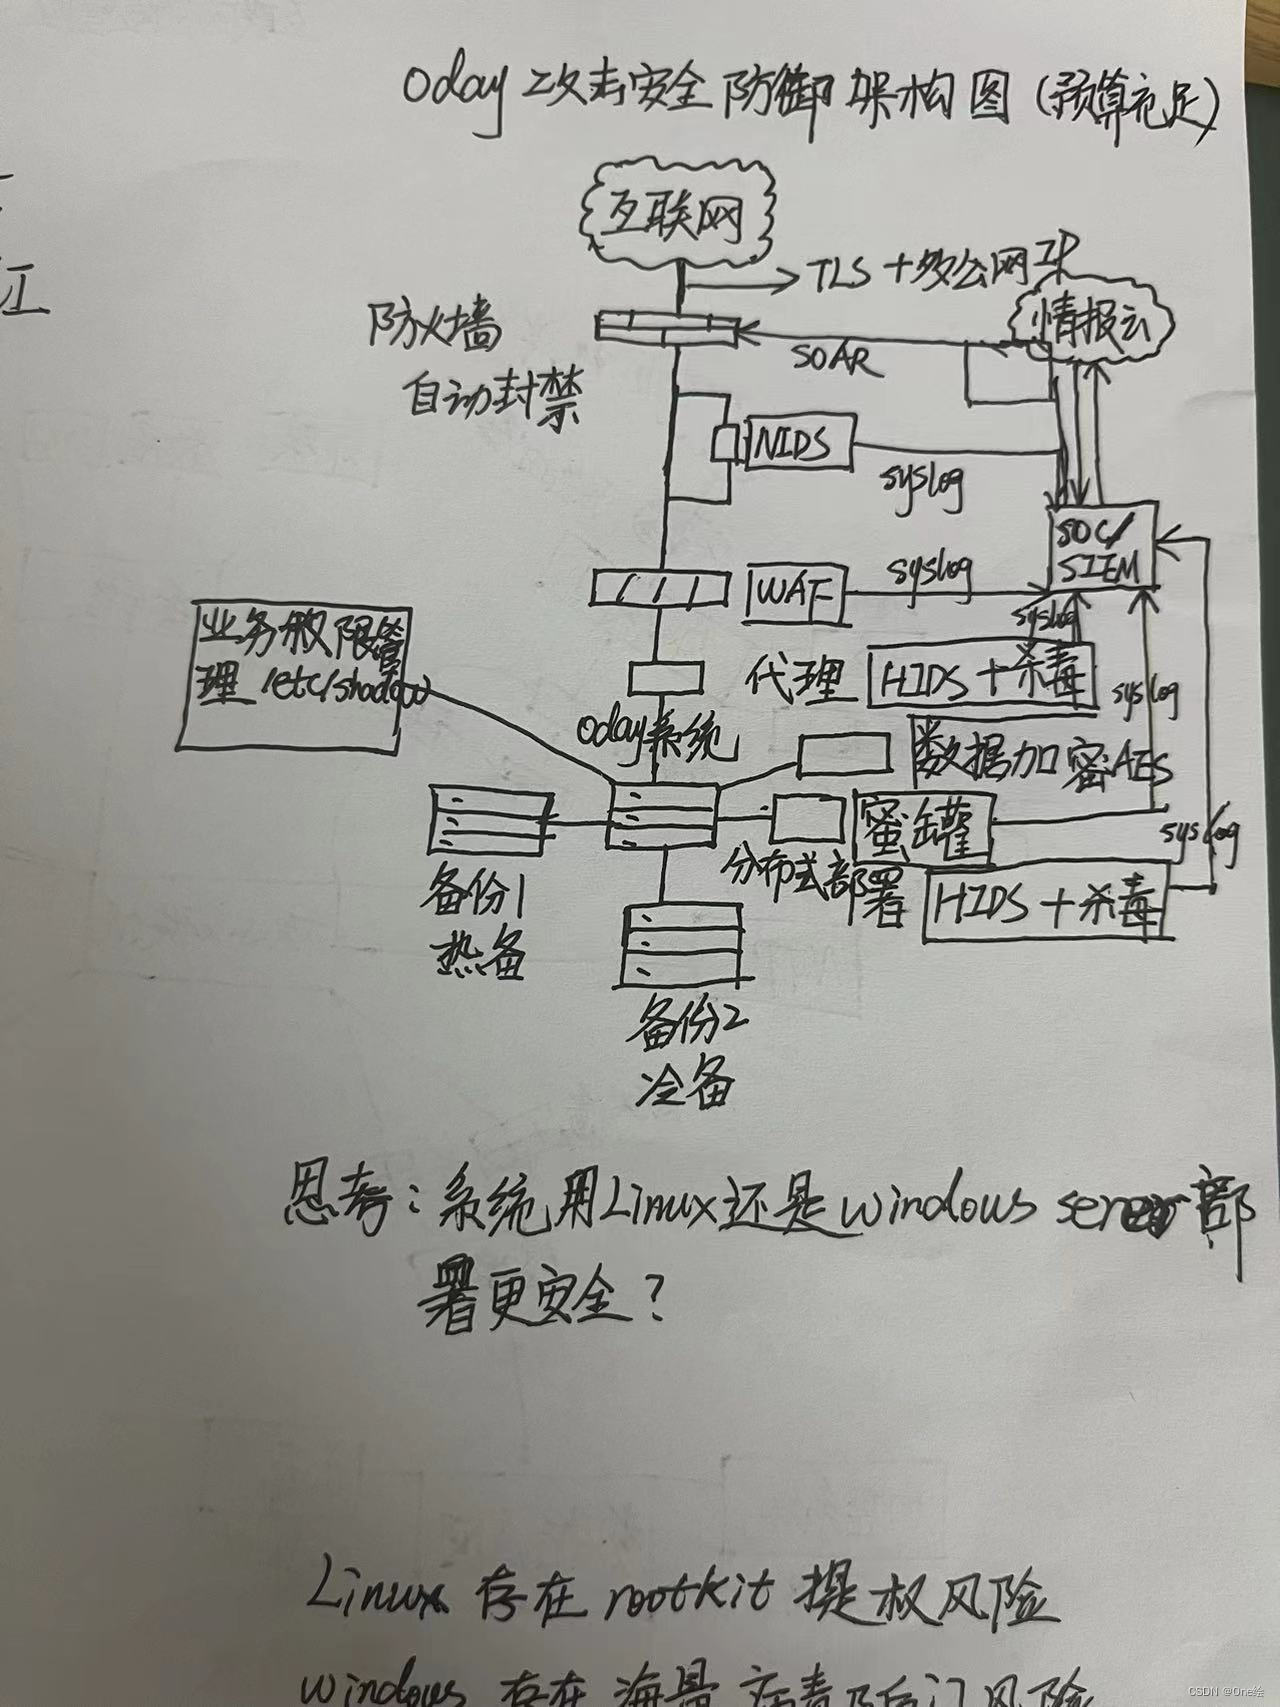 0day攻击安全防御架构图(预算充足)
互联网
TLS+多公网IP
情报云
防火墙
自动封禁
SOAR
NIDS
syslog
SOC/
SIEM
WAF
syslog
syslog
业务权限管
理/etc/shadow
代理
HIDS+杀毒
syslog
0day系统
数据加密AES
蜜罐
syslog
分布式部署
HIDS+杀毒
备份1
热备
备份2
冷备
思考:系统用Linux还是windows server部
署更安全?
Linux存在rootkit提权风险
windows存在海量病毒后门风险
CSDN @One绘